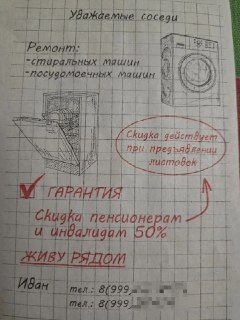 Уважаемые соседи
Ремонт:
-стиральных машин
-посудомоечных машин
Скидка действует
при предъявлении
листовок
ГАРАНТИЯ
Скидка пенсионерам
и инвалидам 50%
ЖИВУ РЯДОМ
Иван
тел.: 8(999)
тел.: 8(999)